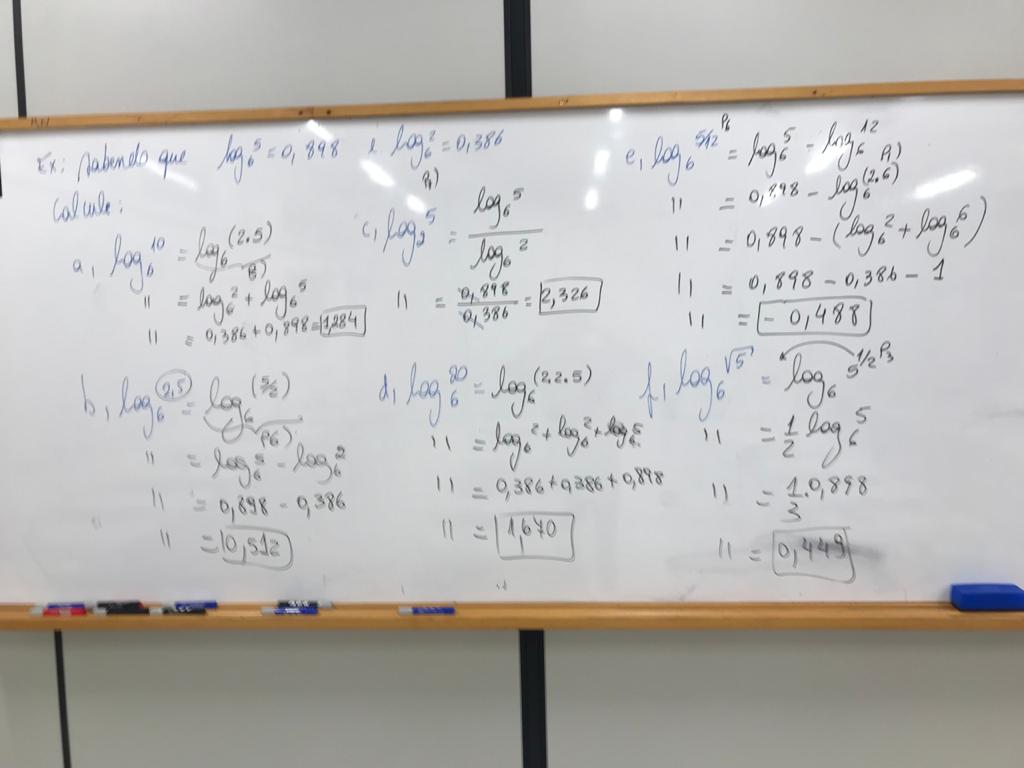 Ex: Sabendo que log₆⁵ = 0,898 e log₆² = 0,386
Calcule:
a, log₆¹⁰ = log₆^(2.5)
" = log₆² + log₆⁵
" = 0,386 + 0,898 = 1,284
b, log₆^2,5 = log₆^(5/2)
P6)
" = log₆⁵ - log₆²
" = 0,898 - 0,386
" = 0,512
c, log₂⁵ = log₆⁵ / log₆²
" = 0,898 / 0,386 = 2,326
d, log₆²⁰ = log₆^(2.2.5)
" = log₆² + log₆² + log₆⁵
" = 0,386 + 0,386 + 0,898
" = 1,670
e, log₆^5/12 P6 = log₆⁵ - log₆¹²
" = 0,898 - log₆^(2.6)
" = 0,898 - (log₆² + log₆⁶)
" = 0,898 - 0,386 - 1
" = - 0,488
f, log₆^√5 = log₆ 5^1/2 P3
" = 1/2 log₆⁵
" = 1/3 . 0,898
" = 0,449